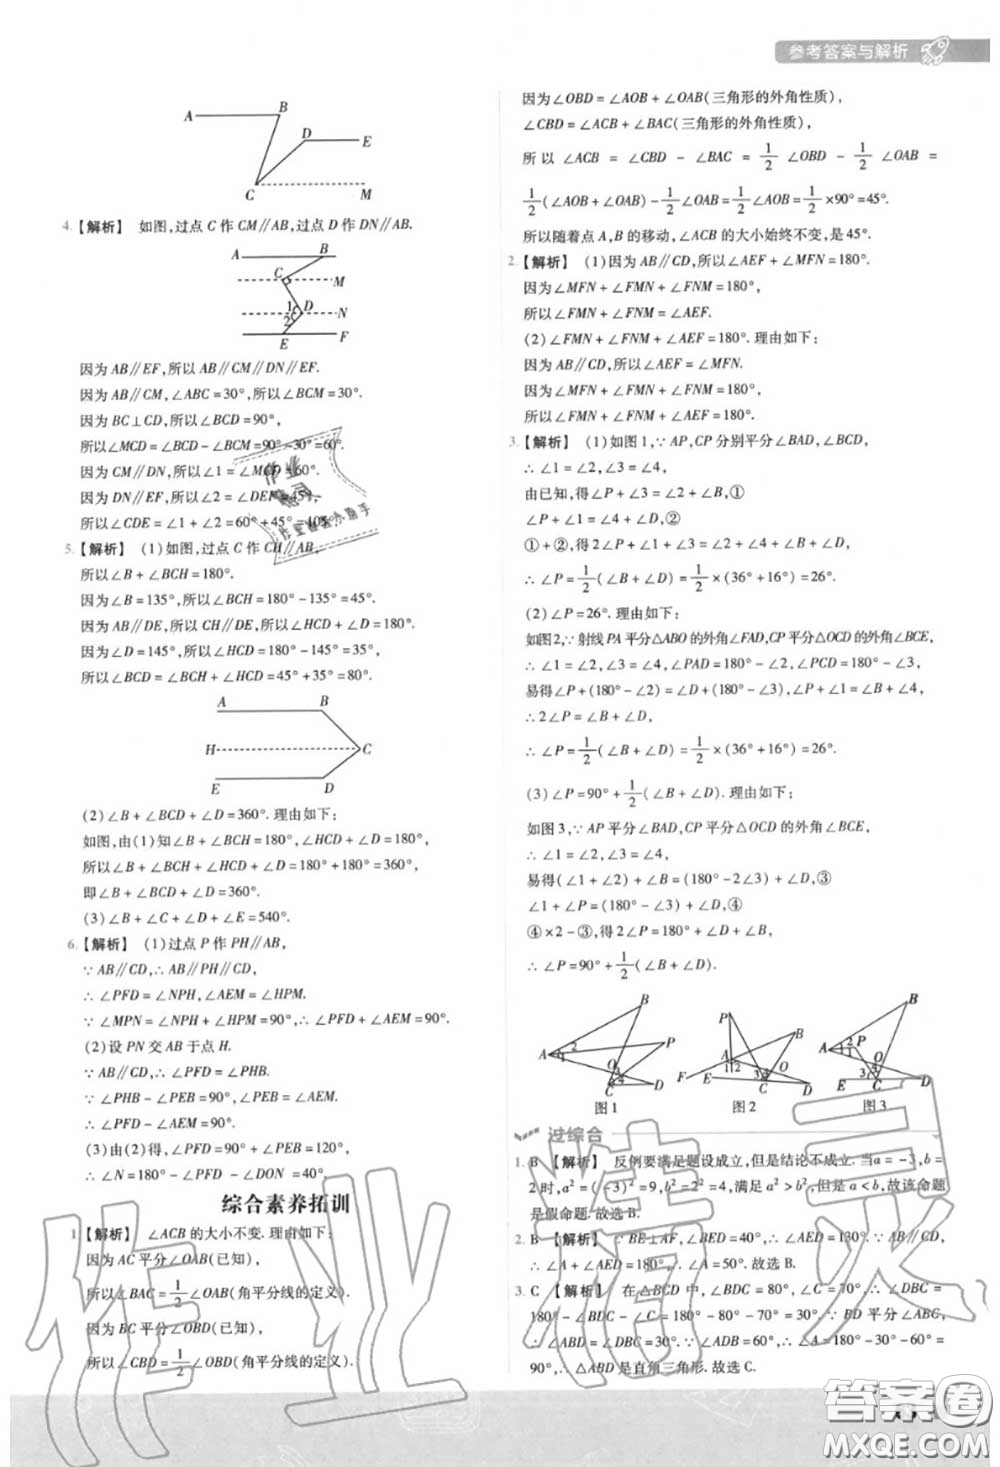 参考答案与解析
A
B
D
E
C
M
4.【解析】 如图,过点 C 作 CM∥AB,过点 D 作 DN∥AB.
A
B
C
M
1
D
N
2
E
F
因为 AB∥EF,所以 AB∥CM∥DN∥EF.
因为 AB∥CM,∠ABC=30°,所以∠BCM=30°.
因为 BC⊥CD,所以∠BCD=90°,
所以∠MCD=∠BCD-∠BCM=90°-30°=60°.
因为 CM∥DN,所以∠1=∠MCD=60°.
因为 DN∥EF,所以∠2=∠DEF=45°,
所以∠CDE=∠1+∠2=60°+45°=105°.
5.【解析】 (1)如图,过点 C 作 CH∥AB,
所以∠B+∠BCH=180°.
因为∠B=135°,所以∠BCH=180°-135°=45°.
因为 AB∥DE,所以 CH∥DE,所以∠HCD+∠D=180°.
因为∠D=145°,所以∠HCD=180°-145°=35°,
所以∠BCD=∠BCH+∠HCD=45°+35°=80°.
A
B
H
C
E
D
(2)∠B+∠BCD+∠D=360°.理由如下:
如图,由(1)知∠B+∠BCH=180°,∠HCD+∠D=180°,
所以∠B+∠BCH+∠HCD+∠D=180°+180°=360°,
即∠B+∠BCD+∠D=360°.
(3)∠B+∠C+∠D+∠E=540°.
6.【解析】 (1)过点 P 作 PH∥AB,
∵ AB∥CD,∴ AB∥PH∥CD,
∴ ∠PFD=∠NPH,∠AEM=∠HPM.
∵ ∠MPN=∠NPH+∠HPM=90°,∴ ∠PFD+∠AEM=90°.
(2)设 PN 交 AB 于点 H.
∵ AB∥CD,∴ ∠PFD=∠PHB.
∵ ∠PHB-∠PEB=90°,∠PEB=∠AEM,
∴ ∠PFD-∠AEM=90°.
(3)由(2)得,∠PFD=90°+∠PEB=120°,
∴ ∠N=180°-∠PFD-∠DON=40°.
综合素养拓训
1.【解析】 ∠ACB 的大小不变.理由如下:
因为 AC 平分∠OAB(已知),
所以∠BAC=1/2∠OAB(角平分线的定义).
因为 BC 平分∠OBD(已知),
所以∠CBD=1/2∠OBD(角平分线的定义).
因为∠OBD=∠AOB+∠OAB(三角形的外角性质),
∠CBD=∠ACB+∠BAC(三角形的外角性质),
所以 ∠ACB = ∠CBD - ∠BAC = 1/2 ∠OBD - 1/2 ∠OAB =
1/2(∠AOB+∠OAB)-1/2∠OAB=1/2∠OAB=1/2×90°=45°.
所以随着点A,B的移动,∠ACB的大小始终不变,是45°.
2.【解析】 (1)因为 AB∥CD,所以∠AEF+∠MFN=180°.
因为∠MFN+∠FMN+∠FNM=180°,
所以∠FMN+∠FNM=∠AEF.
(2)∠FMN+∠FNM+∠AEF=180°.理由如下:
因为 AB∥CD,所以∠AEF=∠MFN.
因为∠MFN+∠FMN+∠FNM=180°,
所以∠FMN+∠FNM+∠AEF=180°.
3.【解析】 (1)如图1,∵ AP,CP 分别平分∠BAD,∠BCD,
∴ ∠1=∠2,∠3=∠4,
由已知,得∠2+∠B=∠3+∠P,①
∠P+∠1=∠4+∠D,②
①+②,得2∠P+∠1+∠3=∠2+∠4+∠B+∠D,
∴ ∠P=1/2(∠B+∠D)=1/2×(36°+16°)=26°.
(2)∠P=26°.理由如下:
如图2,∵ 射线 PA 平分△ABO 的外角∠FAD,CP 平分△OCD 的外角∠BCE,
∴ ∠1=∠2,∠3=∠4,∴ ∠PAD=180°-∠2,∠PCD=180°-∠3,
易得∠P+(180°-∠2)=∠D+(180°-∠3),∠P+∠1=∠B+∠4,
∴ 2∠P=∠B+∠D,
∴ ∠P=1/2(∠B+∠D)=1/2×(36°+16°)=26°.
(3)∠P=90°+1/2(∠B+∠D).理由如下:
如图3,∵ AP 平分∠BAD,CP 平分△OCD 的外角∠BCE,
∴ ∠1=∠2,∠3=∠4,
易得(∠1+∠2)+∠B=(180°-2∠3)+∠D,③
∠1+∠P=(180°-∠3)+∠D,④
④×2-③,得2∠P-∠B=180°+∠D,
∴ ∠P=90°+1/2(∠B+∠D).
图1
图2
图3
过综合
1. B 【解析】 反例要满足题设成立,但是结论不成立.当a=-3,b=
2时,a²=(-3)²=9,b²=2²=4,满足a²>b²,但是a<b,故该命题
是假命题.故选B.
2. B 【解析】 ∵ BE⊥AF,∠BED=40°,∴ ∠AED=130°.∵ ∠D=
∴ ∠A+∠AED=180°,∴ ∠A=50°.故选B.
3. C 【解析】 在△BCD 中,∠BDC=80°,∠C=70°,∴ ∠DBC=
180°-∠BDC-∠C=180°-80°-70°=30°.∵ BD 平分∠ABC,
∴ ∠ABD=∠DBC=30°.∵ ∠ADB=60°,∴ ∠A=180°-30°-60°=
90°,∴ △ABD 是直角三角形.故选C.
作业精灵
答案圈
MXQE.COM